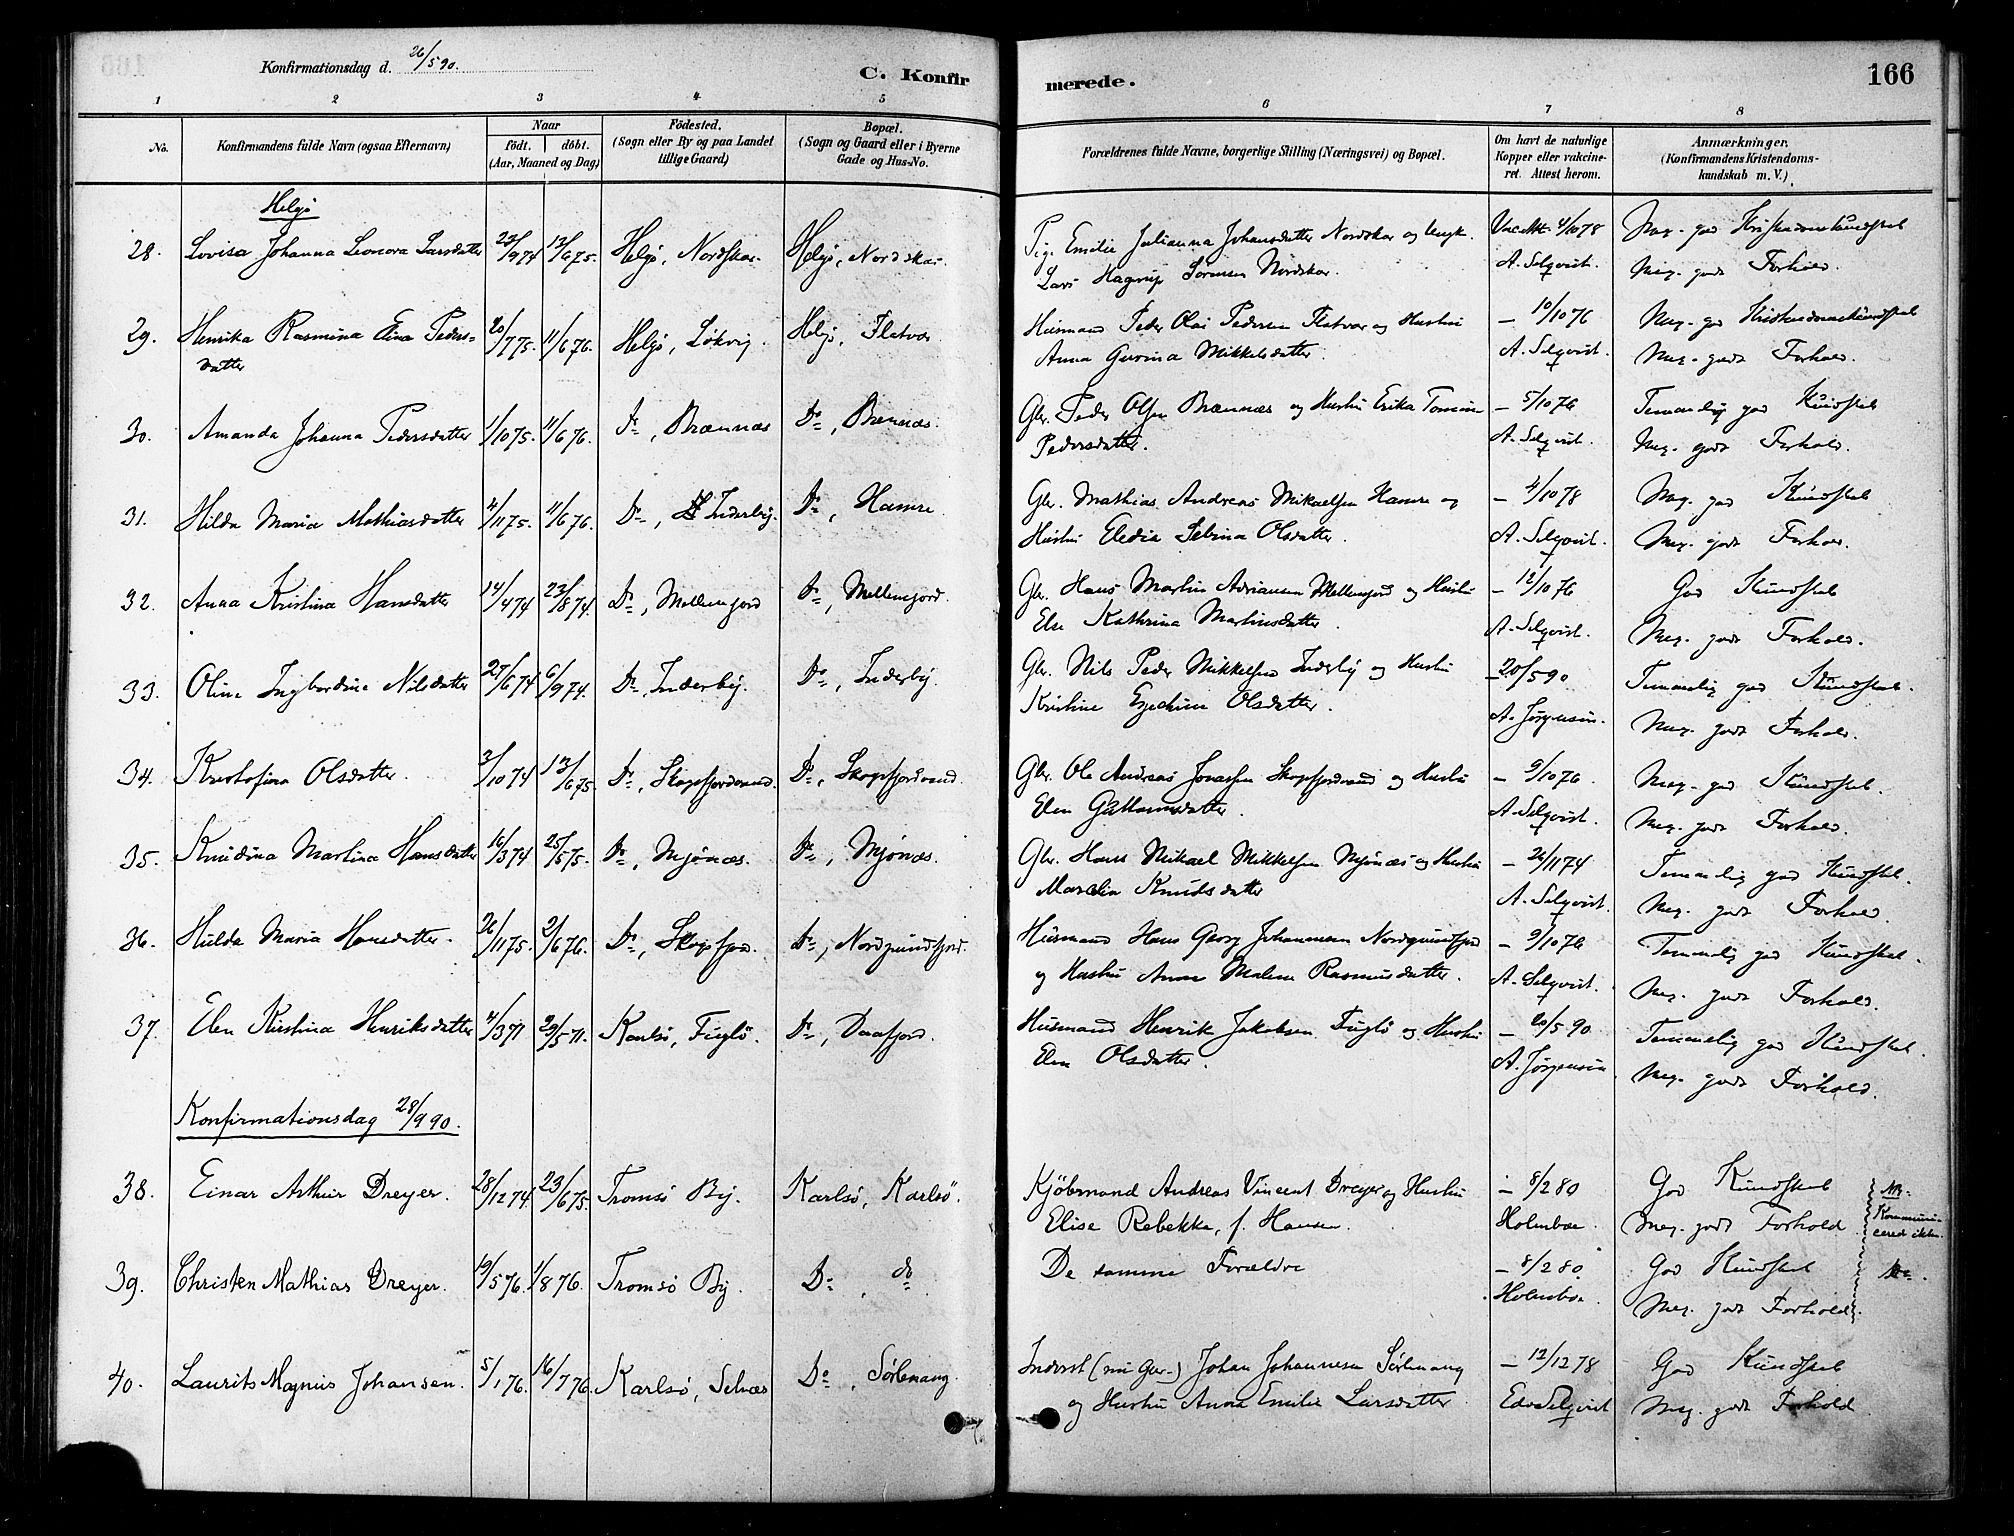 Konfirmationsdag d. 26/5 90.
C. Konfirmerede.
166
1 2 3 4 5 6 7 8
No.
Konfirmandens fulde Navn (ogsaa Efternavn)
Naar
født. døbt.
(Aar, Maaned og Dag)
Fødested.
(Sogn eller By og paa Landet tillige Gaard)
Bopæl.
(Sogn og Gaard eller i Byerne Gade og Hus-No.
Forældrenes fulde Navne, borgerlige Stilling (Næringsvei) og Bopæl.
Om havt de naturlige Kopper eller vakcineret. Attest herom.
Anmærkninger.
(Konfirmandens Kristendomskundskab m. V.)
Helgö
28. Lovisa Johanna Leonora Larsdatter 23/9 74 13/6 75. Helgö, Nordskar. Helgö, Nordskar. Pige Emilie Julianna Johansdatter Nordskar og Ungk. Vac. Att. 4/10 78 Meg. god Kristendomskundskab
Lars Hagrup Sörensen Nordskar. A. Selqvist. Meg. godt Forhold.
29. Henrika Rasmina Elina Peders- 20/7 75. 11/6 76. Helgö, Lökvig. Helgö, Flatvær Husmand Peder Olai Pedersen Flatvær og Hustru — 10/10 76 Meg. god Kristendomskundskab
datter Anna Gurina Mikkelsdatter. A. Selqvist. Meg. godt Forhold.
30. Amanda Johanna Pedersdatter 1/10 75. 11/6 76. Do, Brænnæs Do, Brænnæs. Gbr. Peder Olsen Brænnæs og Hustru Erika Tomine — 5/10 76 Temmelig god Kundskab
Pedersdatter. A. Selqvist. Meg. godt Forhold.
31. Hilda Maria Mathiasdatter 4/11 75. 11/6 76. Do, Inderby. Do, Hamre. Gbr. Mathias Andreas Mikaelsen Hamre og — 4/10 78 Meg. god Kundskab
Hustru Eledia Sebina Olsdatter. A. Selqvist. Meg. godt Forhold.
32. Anna Kristina Hansdatter 14/4 74 23/8 74. Do, Mellemjord Do, Mellemjord. Gbr. Hans Martin Adriansen Mellemjord og Hustru — 12/10 76 God Kundskab
Else Kathrina Martinusdatter. A. Selqvist. Meg. godt Forhold.
33. Oline Ingbordine Nilsdatter 27/6 74 6/9 74. Do, Inderby. Do, Inderby. Gbr. Nils Peder Mikkelsen Inderby og Hustru — 20/5 90 Temmelig god Kundskab.
Kristine Olsdatter. A. Jørgensen. Meg. godt Forhold.
34. Kristofina Olsdatter. 3/10 74 13/6 75. Do, Skogsfjordvand. Do, Skogsfjordvand. Gbr. Ole Andreas Jonassen Skogsfjordvand og Hustru — 9/10 76 Meg. god Kundskab.
Elen A. Selqvist. Meg. godt Forhold.
35. Knudina Martina Hansdatter 16/3 74 25/5 75. Do, Mjönæs. Do, Mjönæs. Gbr. Hans Mikael Mikkelsen Mjönæs og Hustru — 26/11 74 Temmelig god Kundskab.
Marelia Knudsdatter A. Selqvist. Meg. godt Forhold.
36. Hulda Maria Hansdatter. 26/11 75. 2/6 76. Do, Skogsfjord. Do, Nordgrundfjord. Husmand Hans Georg Johannesen Nordgrundfjord — 9/10 76 Temmelig god Kundskab.
og Hustru Anne Malene Rasmusdatter. A. Selqvist. Meg. godt Forhold.
37. Elen Kirstina Henriksdatter 4/3 71 29/5 71. Karlsö, Fuglö. Do, Daafjord. Husmand Henrik Jakobsen Fuglö og Hustru — 20/5 90. Temmelig god Kundskab.
Elen Olsdatter. A. Jørgensen. Meg. godt Forhold.
Konfirmationsdag 28/9 90.
38. Einar Arthur Dreyer. 28/12 74. 23/6 75. Tromsö By. Karlsö, Karlsö. Kjöbmand Andreas Vincent Dreyer og Hustru — 8/2 80 God Kundskab
Elise Rebekka, f. Hansen. Holmboe. Meg. godt Forhold Kommunicered ikke.
39. Christen Mathias Dreyer. 19/5 76. 1/8 76. Tromsö By. Do, do. De samme Forældre — 8/2 80. God Kundskab
Holmboe. Meg. godt Forhold.
40. Laurits Magnus Johansen. 5/1 76. 16/7 76. Karlsö, Selnæs Do, Sörlenang. Inderst (nu Gbr.) Johan Johannesen Sörlenang — 12/12 78 God Kundskab
og Hustru Anna Emilie Larsdatter Edv. Selqvist Meg. godt Forhold